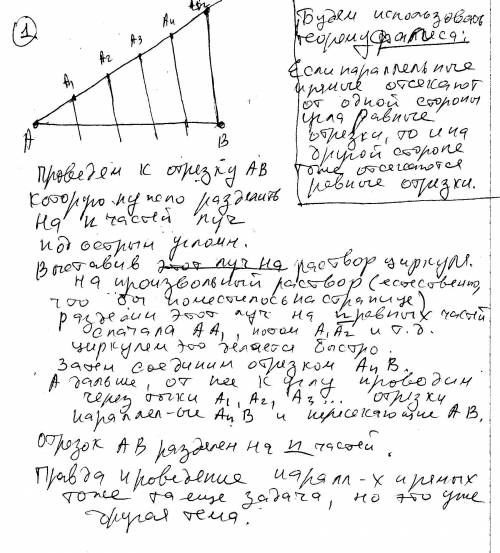 1
A
A1
A2
A3
A4
B
Будем использовать
теорему Фалеса:
Если параллельные
прямые отсекают
от одной стороны
угла равные
отрезки, то и на
другой стороне
тоже отсекаются
равные отрезки.
Проведем к отрезку AB
которую нужно разделить
на n частей луч
под острым углом.
Выставив этот луч на раствор циркуля.
на произвольный раствор (естественно,
что бы поместилось на странице)
разделим этот луч на n равных частей
сначала AA1, потом A1A2 и т.д.
циркулем это делается быстро.
Затем соединим отрезком AnB.
А дальше, от нее к углу проводим
через точки A1, A2, A3... отрезки
параллел-ые AnB и пересекающие AB.
Отрезок AB разделен на n частей.
Правда проведение паралл-х прямых
тоже та еще задача, но это уже
другая тема.